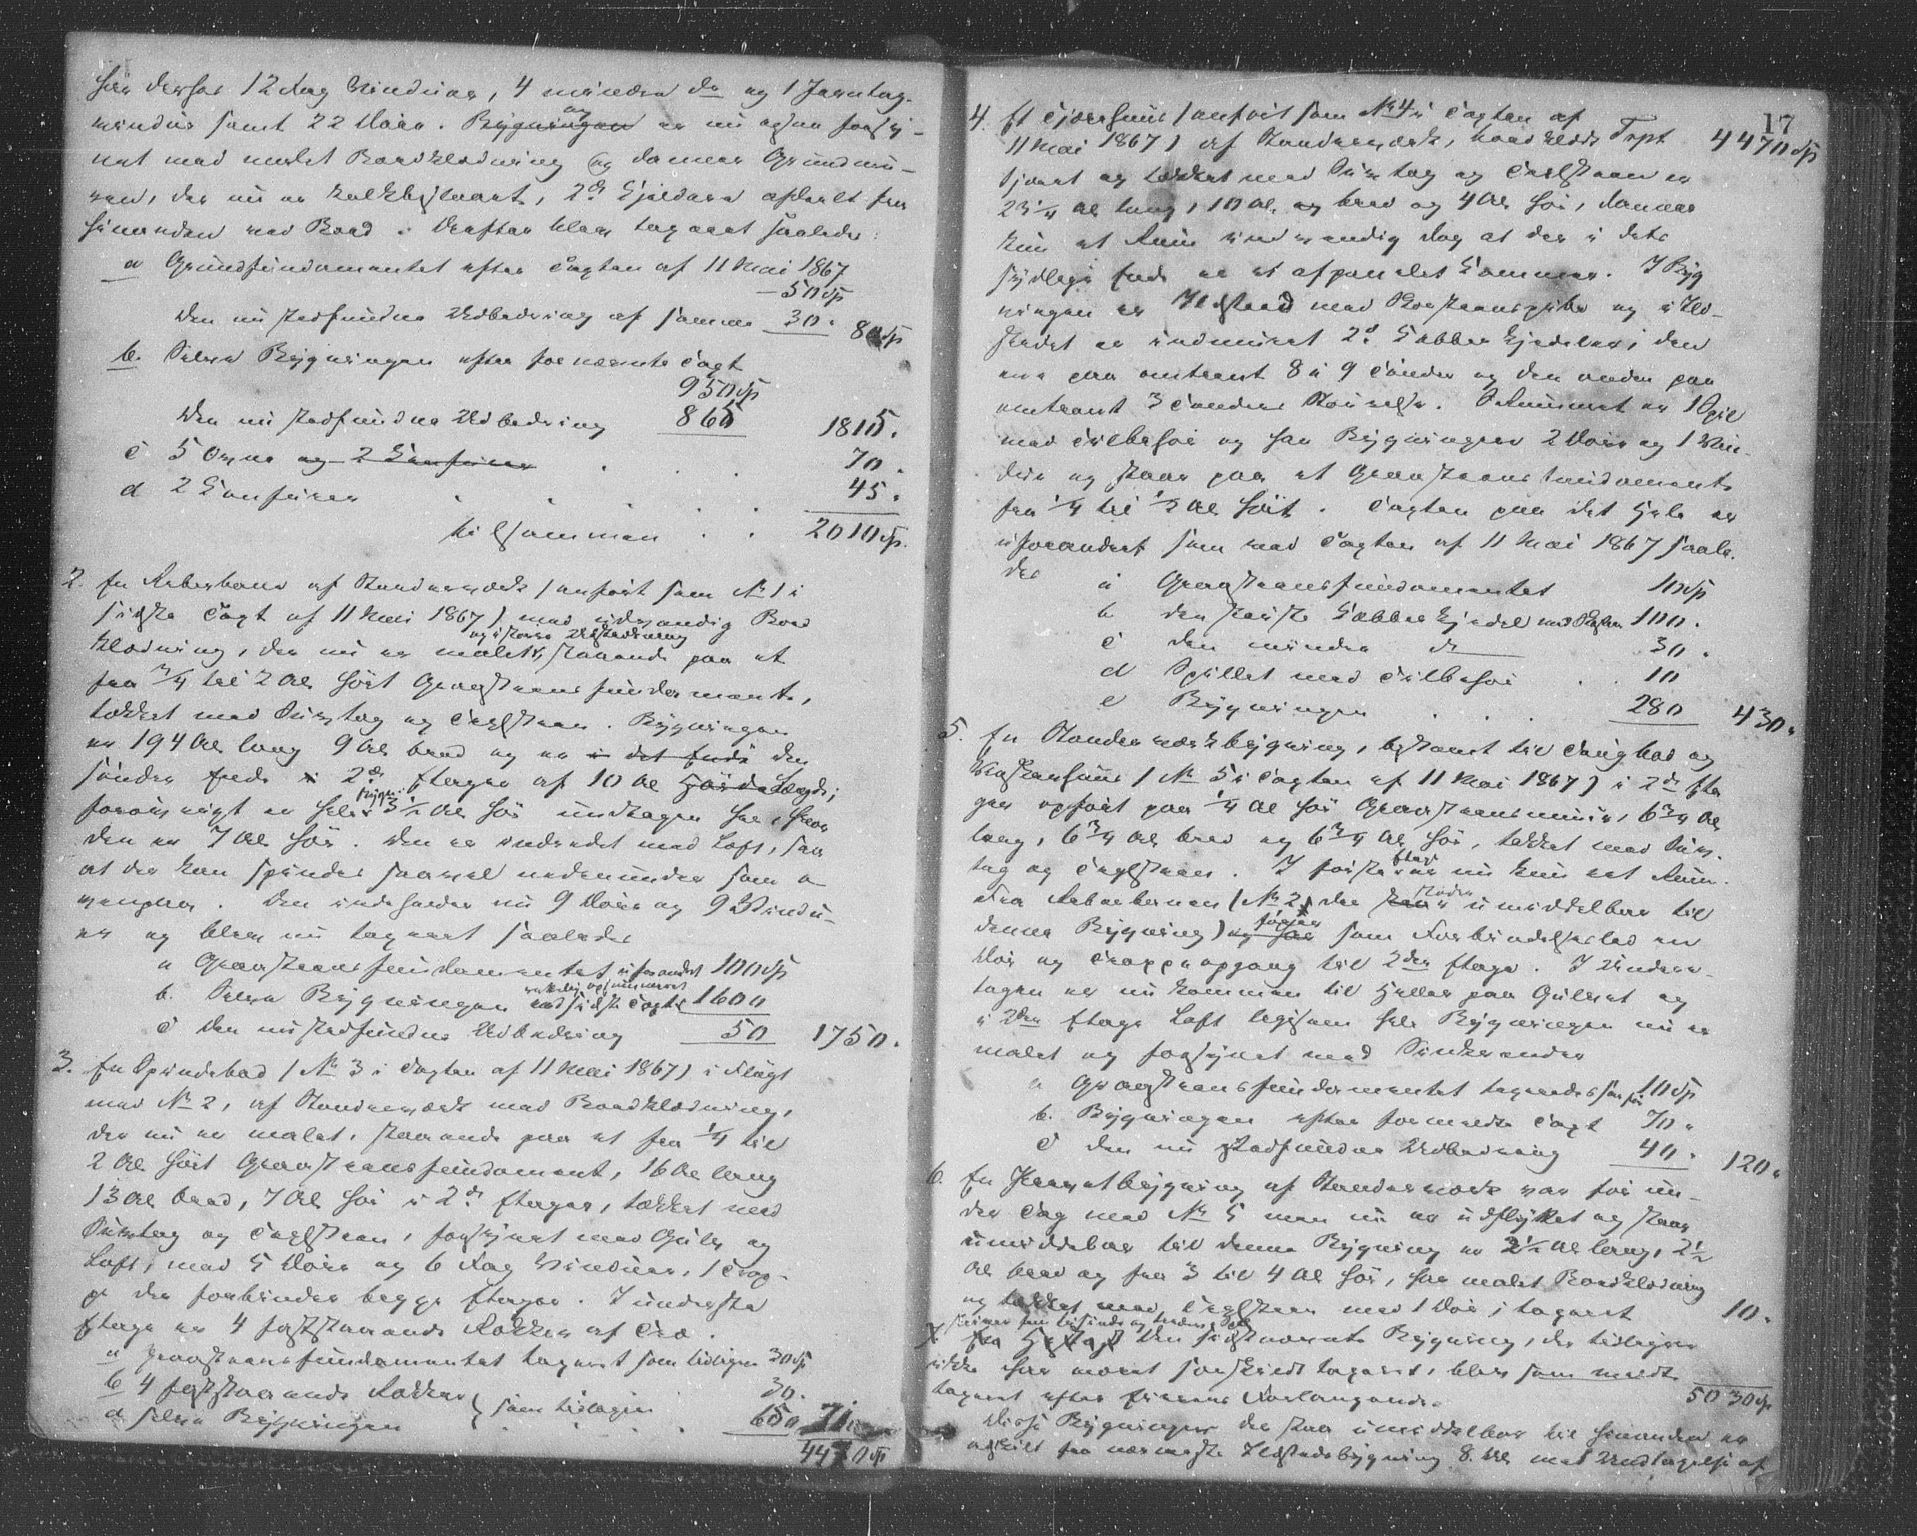 har derfor 12 dag Vinduer, 4 mindre do og 1 Jerntag-
vindue samt 22 Døre. Bygningen er nu ogsaa forsy-
net med malet Bordklædning og dennes Grundmu-
ren, der nu er kalkbestvært, 2de Kjeldere afdeelt fra
hinanden ved Bord. Derefter blev taxeret saaledes:
a Grundfundamentet efter Taxten af 11 Mai 1867
50 Sp
den nu stedfundne Udbedring af samme 30. 80 Sp
b. Selve Bygningen efter fornævnte Taxt
950 Sp
den nu stedfundne Udbedring 865 1815.
c 5 Ovne og 2 Komfurer 70.
d 2 Komfurer 45.
tilsammen 2010 Sp.
2. En Reberbane af Stenderværk (anført som No 1 i
sidste Taxt af 11 Mai 1867) med udvendig Bord
klædning, der nu er malet, staaende paa et
fra 3/4 til 2 Al høit Graasteensfundament,
tækket med Suutag og Teglsteen. Bygningen
er 194 Al lang 9 Al bred og er i det Ende den
søndre Ende i 2de Etager af 10 Al Høide Længde,
forøvrigt er hele 3 1/2 Al høi undtagen her, hvor
den er 7 Al høi. Den er indredet med Loft, saa
at der kan spindes saavel nedenunder som o-
venpaa. Den indeholder nu 9 Døre og 9 Vindu-
er og blev nu taxeret saaledes
a Graasteensfundamentet uforandret 100 Sp
b. Selve Bygningen ved sidste Taxt 1600
c den nu stedfundne Udbedring 50 1750.
3. En Spindebod (No 3 i Taxten af 11 Mai 1867) i Flugt
med No 2, af Stenderværk med Bordklædning,
der nu er malet, staaende paa et fra 1/4 til
2 Al høit Graasteensfundament, 16 Al lang
13 Al bred, 7 Al høi i 2de Etager, tækket med
Suutag og Teglsteen, forsynet med Gulv og
Loft, med 5 Døre og 6 Fag Vinduer, 1 Trap-
pe der forbinder begge Etager. I underste
Etage er 4 faststaaende Rokker af Træ.
a Graasteensfundamentet taxeret som tidligere 30 Sp
b 4 faststaaende Rokker 30.
d selve Bygningen som tidligere 650 710
4470 Sp
17
4. Et Tjærehuus (anført som No 4 i Taxten af Trpt 4470 Sp
11 Mai 1867) af Stenderværk, bordklædt
tjæret og tækket med Suutag og Teglsteen er
23 1/4 Al lang, 10 Al. og bred og 4 Al høi, danner
kun et Rum indvendig dog at der i dets
sydlige Ende er et afpanelet Kammer. I Byg
ningen er Ildsted med Murstenspibe og i Ild-
stedet er indmuret 2de Kobber Kjedeler, den
ene paa omtrent 8 a 9 Tønder og den anden paa
omtrent 3 Tønders Størrelse. I Rummet er 1 Spil
med Tilbehør og har Bygningen 2 Døre og 1 Vin-
due og staar paa et Graasteensfundament
fra 1/4 til 1/2 Al høit. Taxten paa det Hele er
uforandret som ved Taxten af 11 Mai 1867 saale-
des
a Graasteensfundamentet 10 Sp
b den største Kobber Kjedel 100.
c den mindre do 30.
d Spillet med Tilbehør 10
e Bygningen 280 430.
5. En Stenderværksbygning, bestemt til Taugbod og
(No 5 i Taxten af 11 Mai 1867) i 2de Eta
ger opført paa 1/4 Al høi Graasteensmuur, 6 3/4 Al
lang, 6 3/4 Al bred og 6 3/4 Al høi, tækket med Suu-
tag og Teglsteen. I første Etage er nu kun eet Rum.
Fra Reberbanen (No 2, der støder umiddelbar til
denne Bygning) og har fører som Forbindelsesled en
Dør og Trappeopgang til 2den Etage. I Under-
etagen er nu kommen til Heller paa Gulvet og
i 2den Etage Loft ligesom hele Bygningen nu er
malet og forsynet med Tinkrender
a Graasteensfundamentet taxeredes som før 10 Sp
b. Bygningen efter formeldte Taxt 70.
c den nu stedfundne Udbedring 40. 120.
6. En Privetbygning af Stenderværk var før un-
der Tag med No 5 men nu er udflyttet og staar
umiddelbar til denne Bygning er 2 1/2 Al lang, 2 1/2
Al bred og fra 3 til 4 Al høi, har malet Bordklædning
og tækket med Teglsteen med 1 Dør, taxeret 10.
den sidstnævnte Bygning, der tidligere
ikke har været særskildt taxeret, blev som meldt
taxeret efter Eierens Forlangende. 5030 Sp
Disse Bygninger der staa umiddelbar til hinanden er
adskilt fra nærmeste Ildstedsbygning 8 Al med Undtagelse af